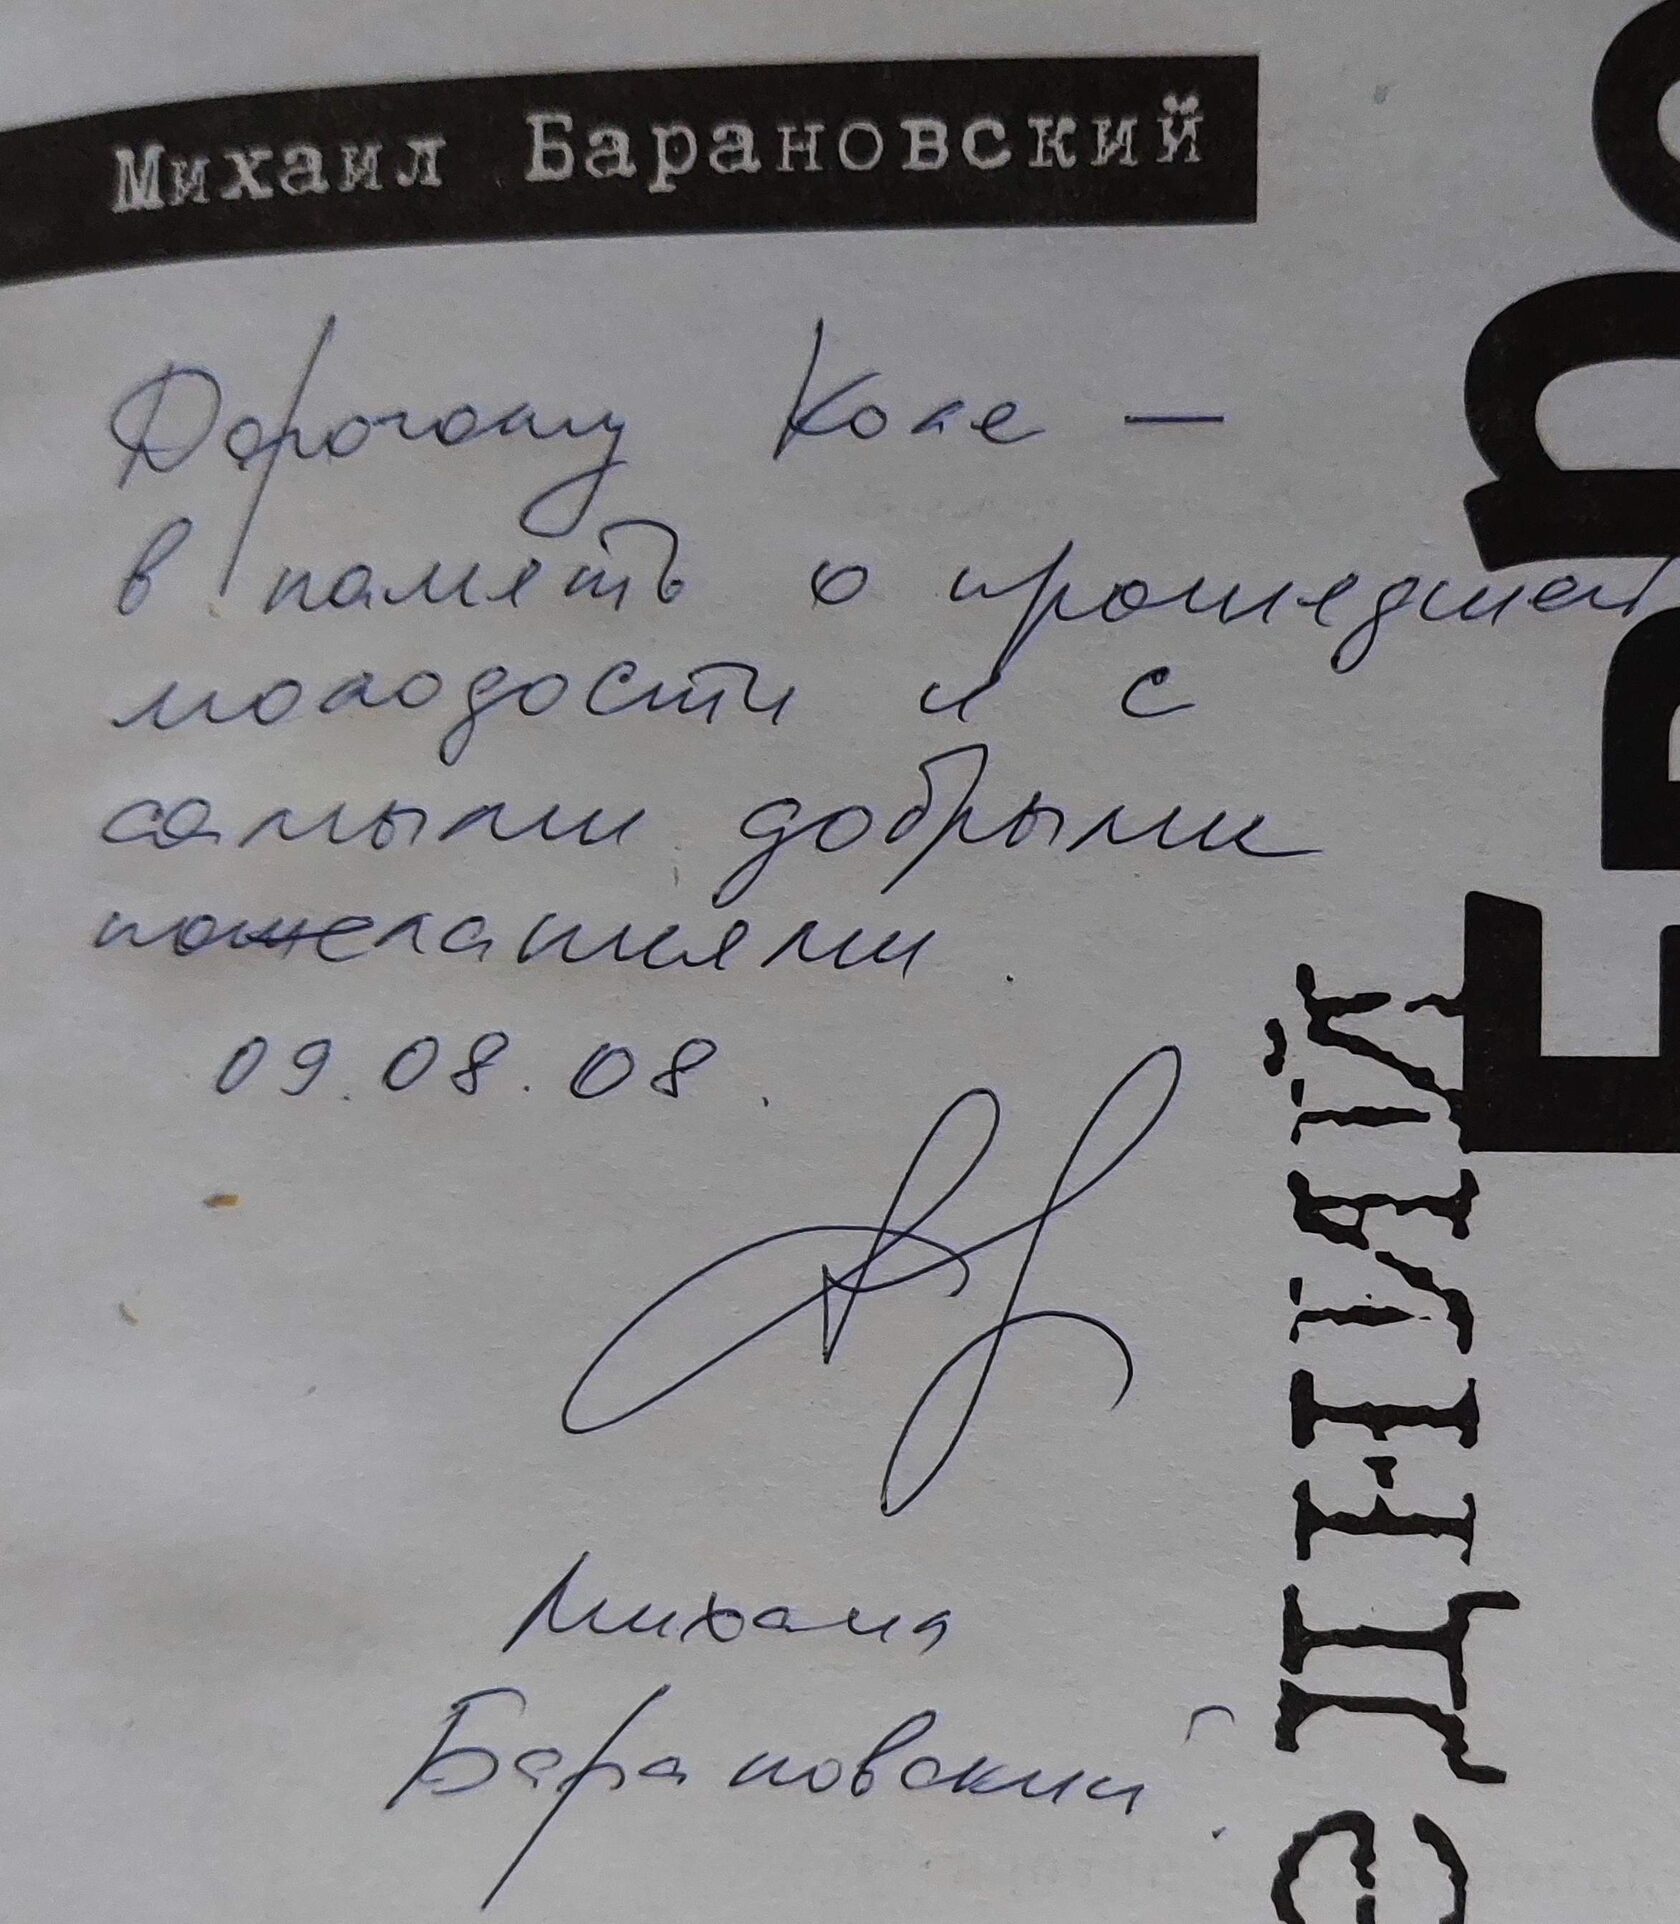 Михаил Барановский
Дорогому Коле —
в память о прошедшей
молодости и с
самыми добрыми
пожеланиями.
09.08.08.
Михаил
Барановский.
едний
ЕВР